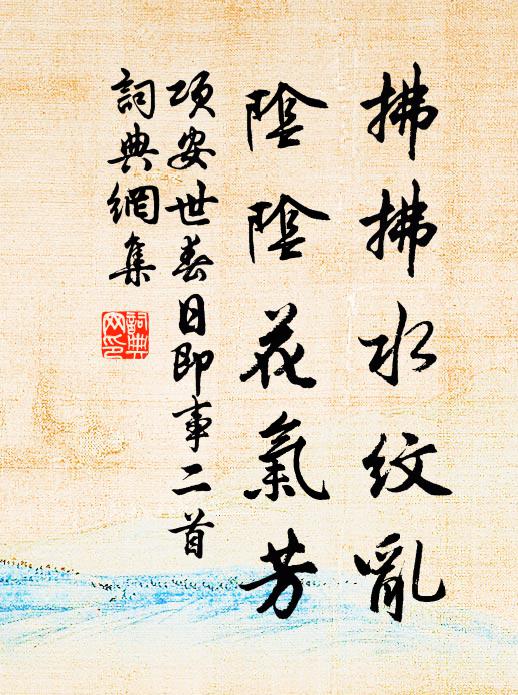 拂拂水紋亂
陰陰花氣芳
項安世春日即事二首
詞典網集
詞典網印